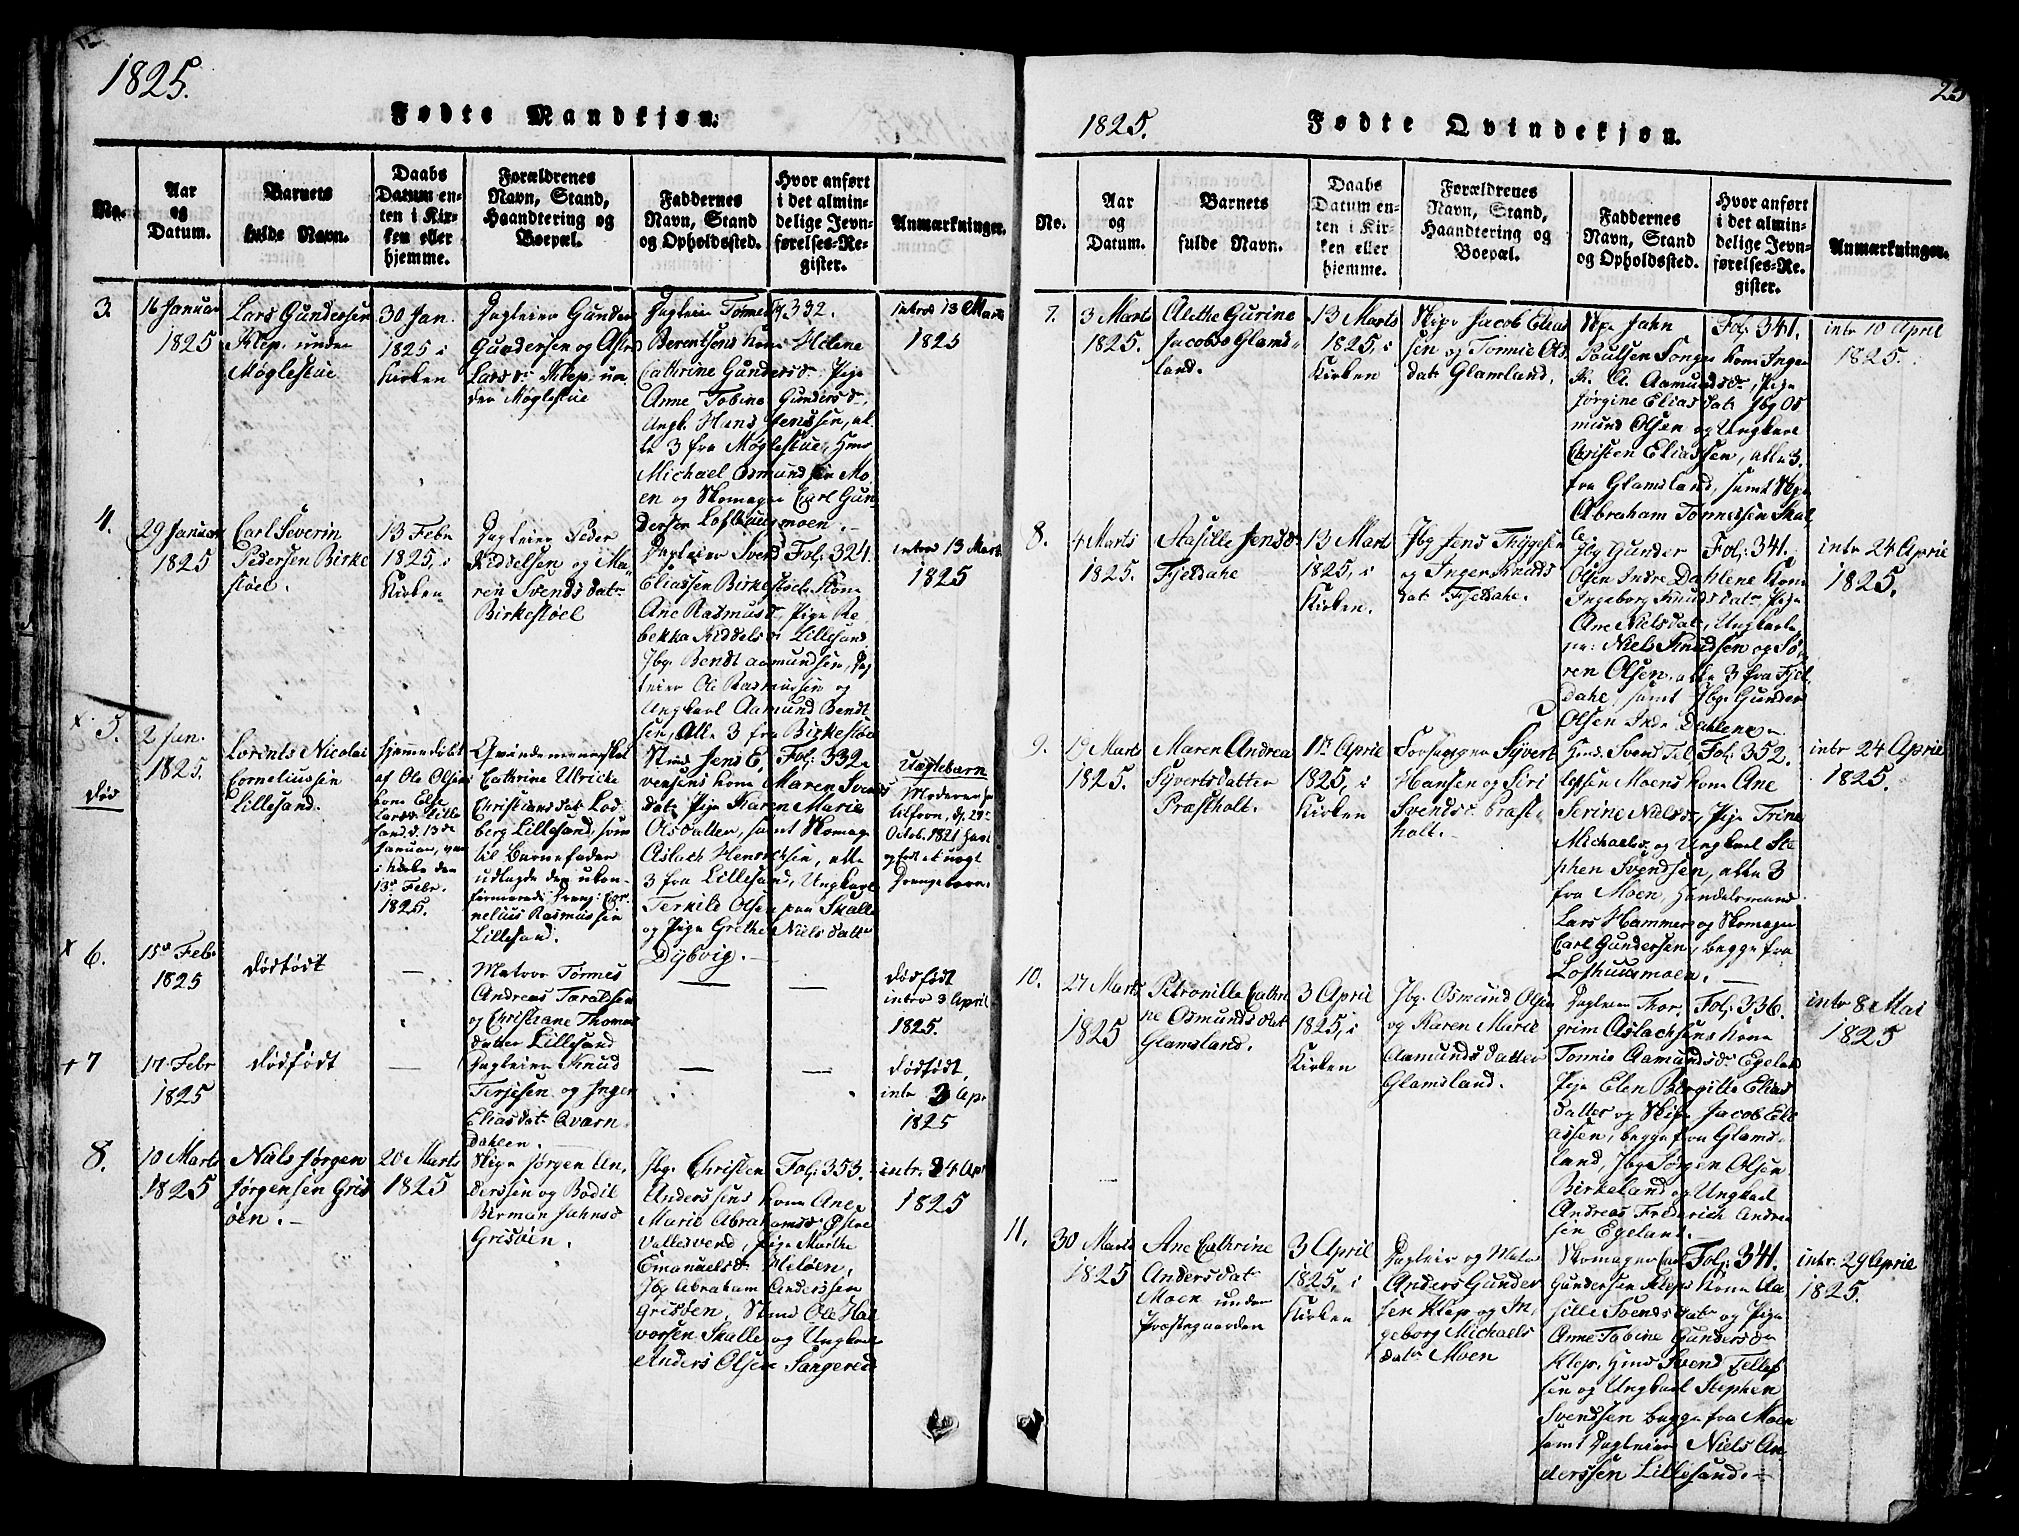 1825.
Fødte Mandkjøn.
No.
Aar
og
Datum.
Barnets
fulde Navn.
Daabs
Datum en-
ten i Kir-
ken eller
hjemme.
Forældrenes
Navn, Stand,
Haandtering og
Boepæl.
Faddernes
Navn, Stand
og Opholdssted.
Hvor anført
i det almin-
delige Jevn-
førelses-Re-
gister.
Anmærkninger.
3.
16 Januar
1825
Lars Gundersen
Klep. under
Møglestue
30 Jan.
1825 i
Kirken
Gunder
Gundersen og
Larsdr Klep. un
der Møglestue
Tønnes
Berentsens Kone Helene
Cathrine Gundersdr, Pige
Anne Tobine Gundersdr,
Ungk. Hans Jenssen, al
le 3 fra Møglestue,
Michael Osmundsen Mo
en og Skomager Carl Gun
dersen Lofthuusmoen.
Fol. 332.
intrd 13 Marts
1825
4.
29 Januar
1825
Carl Severin
Pedersen Birke
støel.
13 Febr
1825, i
Kirken
Peder
Keddelsen og Ma
ren Svendsdatr
Birkestøel
Svend
Eliassen Birkestøel Kone
Ane Rasmusd, Pige Re
bekka Keddelsdr Lillesand
Jbg. Bendt Aamundsen,
Ole Rasmussen og
Ungkarl Aamund Bendt
sen, alle 3 fra Birkestøel
Fol: 324.
intrd 13 Marts
1825
x 5.
død
2 Jan.
1825.
Lorents Nicolai
Corneliussen
Lillesand.
hjemmedøbt
af Ole Olsens
Kone Else
Larsdr Lille
sand, d. 13de
Januar, var
i Kirke den
13de Febr.
1825.
Qvindemennesket
Cathrine Ulricke
Christiansdatr Lod
berg Lillesand, som
til Barnefader
udlagde den ukon-
firmerede Dreng: Cor
nelius Rasmussen
Lillesand.
Jens E
vensens Kone Maren Svends
datr Pige Karen Marie
Olsdatter, samt Skomager
Aslach Henrichsen, alle
3 fra Lillesand, Ungkarl
Terkild Olsen paa Skalle
og Pige Grethe Nielsdatter
Dybvig.
Fol: 332.
Uægtebarn
Moderen
tilforn, d. 29de
Octob. 1821 havt
og født et uægt
Drengebarn.
x 6.
15de Feb.
1825
dødfødt
—
Matros Tønnes
Andreas Taraldsen
og Christiane Thomas
datter Lillesand
—
—
dødfødt
intr 3 April
1825.
+ 7
17 Febr
1825
dødfødt
—
Knud
Terjesen og Inger
Eliasdatr Qvarn
dahlen.
—
—
dødfødt,
intr 3 Apr
1825
8.
10 Marts
1825
Niels Jørgen
Jørgensen Gris
øen.
20 Marts
1825
Skipr Jørgen An
derssen og Bodil
Birman Jahnsdr
Grisøen.
Jbg. Christen
Anderssens Kone Ane
Marie Abrahamsdr Østre
Vallesverd, Pige Marthe
Emanuelsdr Heløen,
Jbg Abraham Anderssen
Grisøen, Ole Hal
vorsen Skalle og Ungkarl
Anders Olsen Sangereid
Fol: 353.
intr. 24 Apr
1825
25
1825.
Fødte Qvindekjøn.
No.
Aar
og
Datum.
Barnets
fulde Navn.
Daabs
Datum en-
ten i Kir-
ken eller
hjemme.
Forældrenes
Navn, Stand,
Haandtering og
Boepæl.
Faddernes
Navn, Stand
og Opholdssted.
Hvor anført
i det almin-
delige Jevn-
førelses-Re-
gister.
Anmærkninger.
7.
3 Marts
1825.
Alethe Gurine
Jacobsdr Glams-
land.
13 Marts
1825, i
Kirken
Skipr Jacob Elias
sen og Tønnie Ols
datr Glamsland.
Skpr Jahn
Poulsen Songe Kone Inger
K. A. Aamundsdr, Pige
Jørgine Eliasdatr Jbg Os
mund Olsen og Ungkarl
Christen Eliassen, alle 3.
fra Glamsland, samt Skpr
Abraham Tønnessen Skal
le.
Fol. 341.
intr 10 April
1825.
8.
4 Marts
1825.
Aasille Jensdr
Fjeldahe
13 Mart
1825, i
Kirken.
Jbg Jens Thygesen
og Inger Knuds
datr Fjeldahe.
Jbg Gunder
Olsen Indre Dahlene Kone
Ingeborg Knudsdatr, Pige
Ane Nielsdatr, Ungkarle
ne: Niels Knudsen og Sø
ren Olsen, alle 3 fra Fjel
dahe samt Jbg. Gunder
Olsen Indr. Dahlene.
Fol: 341.
intr 24 April
1825.
9.
19 Marts
1825.
Maren Andrea
Syvertsdatter
Præstholt.
17 April
1825, i
Kirken
Syvert
Hansen og Siri
Svendsdr Præst-
holt.
Svend Tel
lefsen Moens Kone Ane
Serine Nielsdr, Pige Trine
Michaelsdr og Ungkarl Ste
phen Svendsen, alle 3
fra Moen, Handelsmand
Lars Hammer og Skomager
Carl Gundersen, begge fra
Lofthuusmoen.
Fol: 352.
intr 24 April
1825.
10.
27 Marts
1825
Petronille Cathri
ne Osmundsdatr
Glamsland.
3 April
1825, i
Kirken
Jbg. Osmund Olsen
og Karen Marie
Aamundsdatter
Glamsland.
Thor
grim Aslachsens Kone
Tønnie Aamundsdr Egeland
Pige Elen Børgitte Elias
datter og Skipr Jacob Eli
assen, begge fra Glams-
land, Jbg Jørgen Olsen
Birkeland og Ungkarl
Andreas Frederich Andrea
sen Egeland.
Fol: 336.
intr 8 Mai
1825
11.
30 Marts
1825
Ane Cathrine
Andersdatr
Moen under
Præstegaarden
3 April
1825, i
Kirken
og Matros
Anders Gunder
sen Klep og In
geborg Michaels
datr Moen
Skomager Carl
Gundersen Kleps Kone Aa
sille Svendsdatr og Pige
Anne Tabine Gundersdr
Klep. Svend Tellef
sen og Ungkarl Stephen
Svendsen begge fra Moen
samt Niels An-
derssen Lillesand.
Fol: 341.
intr. 29 April
1825.